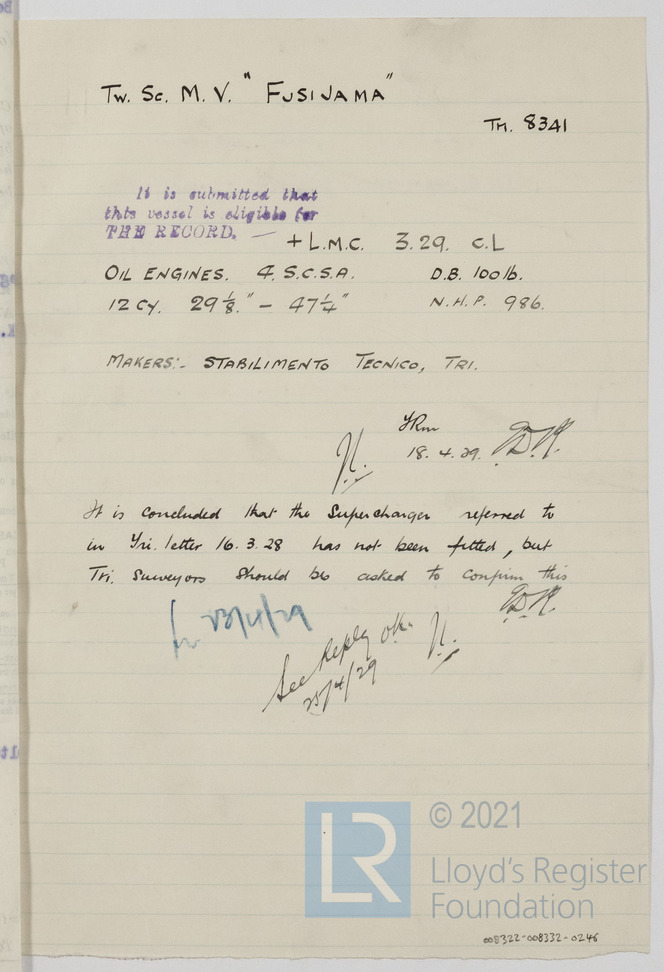 Tw. Sc. M. V. "FUSIJAMA"
Tri. 8341
It is submitted that
this vessel is eligible for
THE RECORD. — + L.M.C. 3.29. C.L
OIL ENGINES. 4. S.C.S.A. D.B. 100 lb.
12 Cy. 29 1/8" - 47 1/4" N.H.P. 986.
MAKERS:- STABILIMENTO TECNICO, TRI.
18. 4. 29.
It is concluded that the Supercharger referred to
in Tri. letter 16. 3. 28 has not been fitted, but
Tri. Surveyors should be asked to confirm this
See Reply
25/4/29
LR
© 2021
Lloyd's Register
Foundation
008322-008332-0246